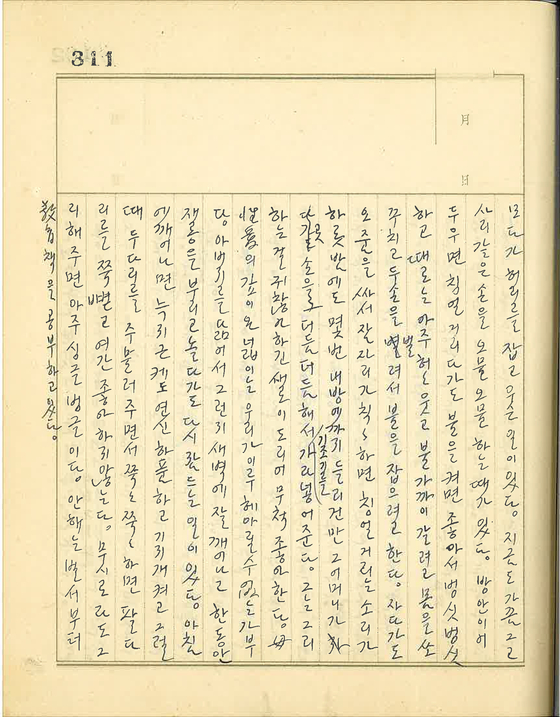 311
月
日
모두가 허리를 잡고 웃은 일이 있다. 지금도 가끔 그 고
사리 같은 손을 오물오물 하는 때가 있다. 방안이 어
두우면 칭얼거리다가도 불을 켜면 좋아서 벙싯벙싯
하고 때로는 아주 허허 웃고 불 가까이 갈려고 몸을 쏘
꾸치고 두 손을 벌려서 불을 잡으려고 한다. 자다가도
오줌을 싸서 잠자리가 척척하면 칭얼거리는 소리가
하룻밤에도 몇 번 내 방에까지 들리건만 그 어머니가
다갈 손을 더듬더듬해서 기저귀를 가라넣어준다. 그는 그리
하는 걸 귀찮아 하긴 샐로이 도리어 무척 좋아한다. 母
性愛의 깊이와 넓이는 우리가 이루 헤아릴 수 없는가부
다. 아버지를 닮어서 그런지 새벽에 잘 깨어나고 한동안
재롱을 부리고 놀다가도 다시 잠드는 일이 있다. 아침
에 깨어나면 늑히 근 케도 연신 하품하고 기지개 켜고 그럴
때 두 다리를 주물러 주면서 쭉쭉 쭉쭉 하면 팔다
리를 쭉 뻗고 여간 좋아하지 않는다. 무시로라도 그
리 해주면 아주 싱글벙글이다. 안해는 벌서부터
敎育책을 공부하고 있다.